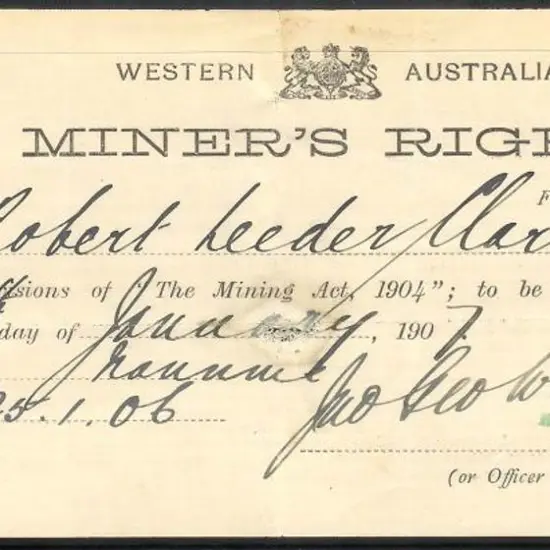 WESTERN AUSTRALIA
MINER'S RIGH
F
Robert Leeder Clar
isions of "The Mining Act, 1904"; to be
day of January, 1907.
25.1.06
Jno Geo W
(or Officer